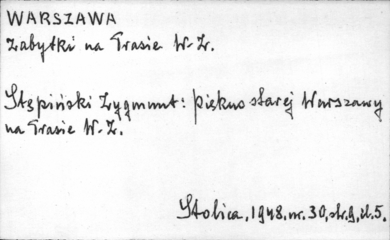 WARSZAWA
Zabytki na Trasie W-Z.
Stępiński Zygmunt: Piękno starej Warszawy
na Trasie W-Z.
Stolica, 1948, nr. 30, str. 9, il. 5.